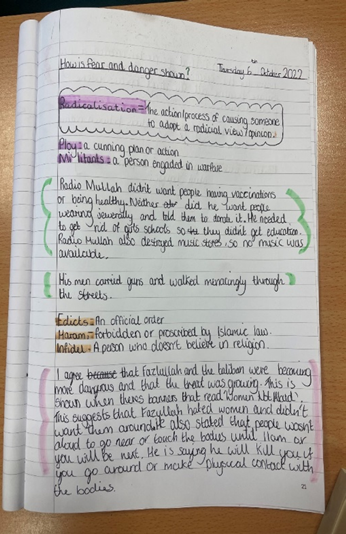 How is fear and danger shown? Thursday 6th October 2022
Radicalisation = The action/process of causing someone
to adopt a radical view/opinion.
Ploy: a cunning plan or action
Militants: a person engaged in warfare
Radio Mullah didn't want people having vaccinations
or being healthy. Neither did he want people
wearing and told them to donate it. He needed
to get rid of girls schools so they didn't get education.
Radio Mullah also destroyed music stores, so no music was
available.
His men carried guns and walked menacingly through
the streets.
Edicts: An official order
Haram: forbidden or proscribed by Islamic law.
Infidel: A person who doesn't believe in religion.
I agree because that Fazlullah and the taliban were becoming
more dangerous and that the threat was growing. This is
shown when theres banners that read 'women not allowed'.
This suggests that Fazlullah hated women and didn't
want them around. He also stated that people wasn't
aloud to go near or touch the bodies until 11am or
you will be next. He is saying he will kill you if
you go around or make physical contact with
the bodies.
21